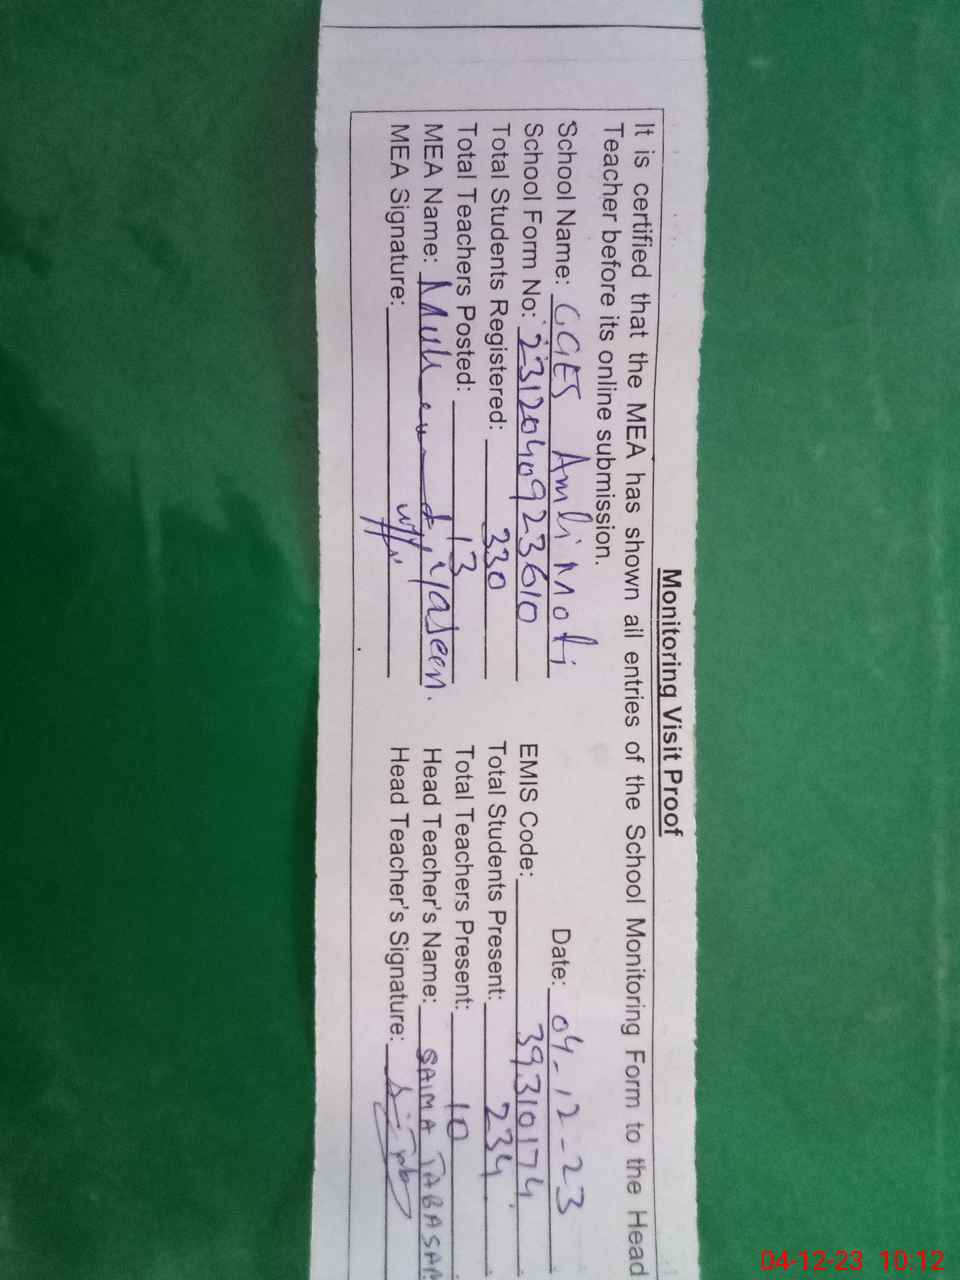 Monitoring Visit Proof
It is certified that the MEA has shown all entries of the School Monitoring Form to the Head
Teacher before its online submission.
School Name: GGES Amli Moti Date: 04-12-23
School Form No: 2312040923610 EMIS Code: 39310174
Total Students Registered: 330 Total Students Present: 234
Total Teachers Posted: 13 Total Teachers Present: 10
MEA Name: Muhammad Yaseen. Head Teacher's Name: SAIMA TABASAM
MEA Signature: Head Teacher's Signature:
04-12-23 10:12